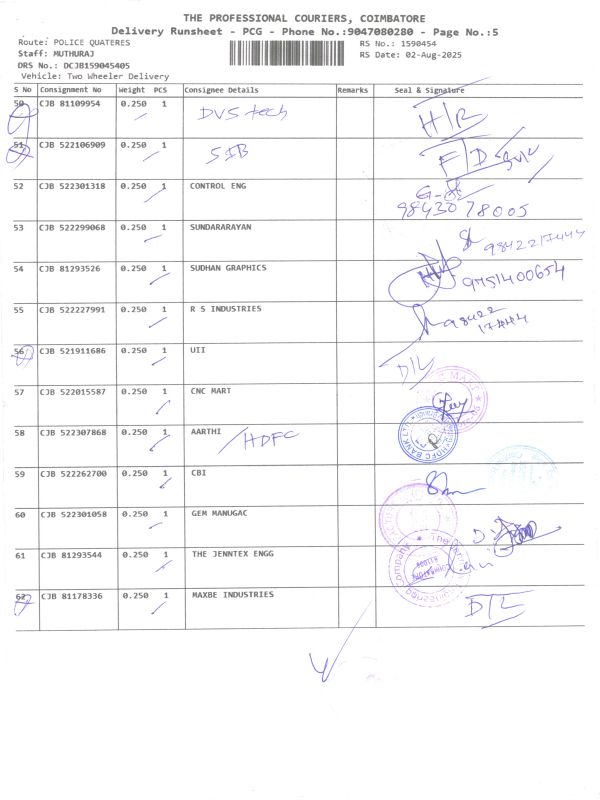 THE PROFESSIONAL COURIERS, COIMBATORE
Delivery Runsheet - PCG - Phone No.:9047080280 - Page No.:5
Route: POLICE QUATERES
RS No.: 1590454
Staff: MUTHURAJ
RS Date: 02-Aug-2025
DRS No.: DCJB159045405
Vehicle: Two Wheeler Delivery
S No Consignment No Weight PCS Consignee Details Remarks Seal & Signature
50 CJB 81109954 0.250 1 DVS tech H/R
51 CJB 522106909 0.250 1 SIB F/D
52 CJB 522301318 0.250 1 CONTROL ENG
9843078005
53 CJB 522299068 0.250 1 SUNDARARAYAN
9842217444
54 CJB 81293526 0.250 1 SUDHAN GRAPHICS
9751400654
55 CJB 522227991 0.250 1 R S INDUSTRIES
98422
17444
56 CJB 521911686 0.250 1 UII D/L
57 CJB 522015587 0.250 1 CNC MART
58 CJB 522307868 0.250 1 AARTHI / HDFC
HDFC BANK LTD
59 CJB 522262700 0.250 1 CBI
60 CJB 522301058 0.250 1 GEM MANUGAC
61 CJB 81293544 0.250 1 THE JENNTEX ENGG
62 CJB 81178336 0.250 1 MAXBE INDUSTRIES D/L